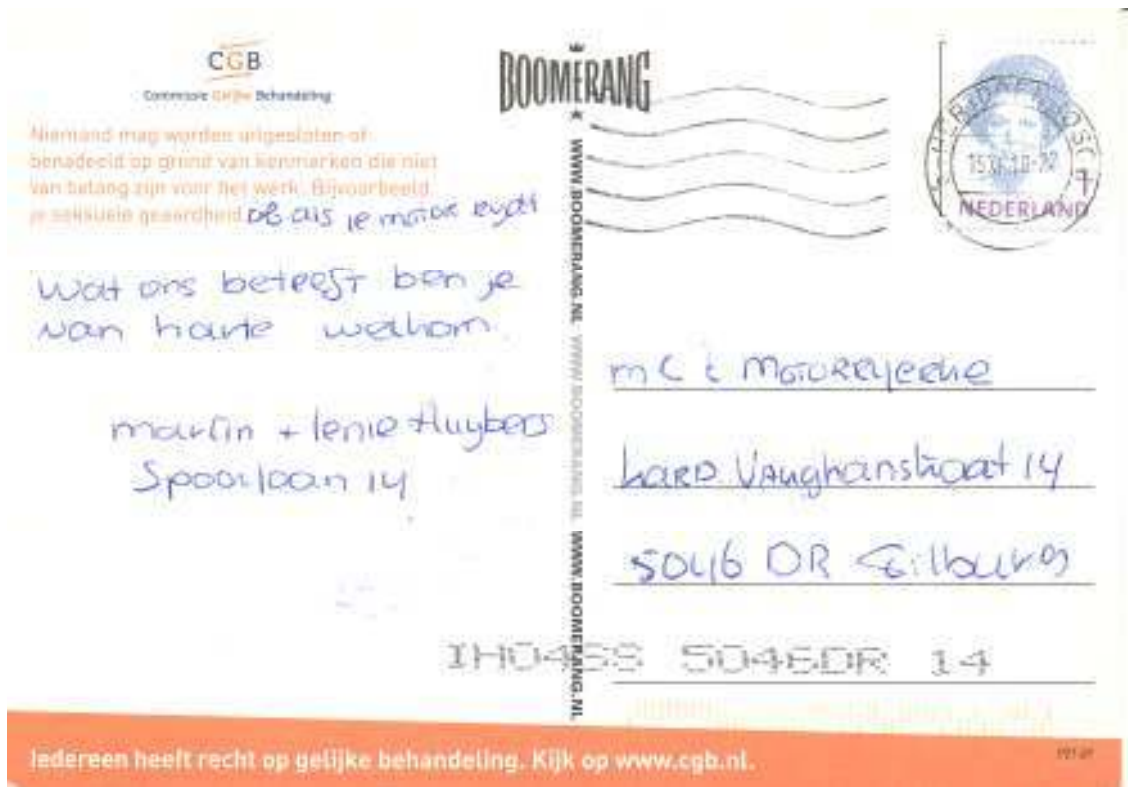 CGB
Commissie Gelijke Behandeling
Niemand mag worden uitgesloten of
benadeeld op grond van kenmerken die niet
van belang zijn voor het werk. Bijvoorbeeld
je seksuele geaardheid of als je motor rydt
Wat ons betreft ben je
van harte welkom.
Martin + Ienie Huybers
Spoorlaan 14
BOOMERANG
WWW.BOOMERANG.NL WWW.BOOMERANG.NL WWW.BOOMERANG.NL
NEDERLAND
MC t Motorryerke
Lard Vaughanstraat 14
5046 DR Tilburg
5046DR 14
Iedereen heeft recht op gelijke behandeling. Kijk op www.cgb.nl.